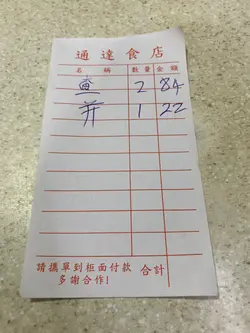 通達食店
名稱 數量 金額
2 84
并 1 22
請攜單到柜面付款 合計
多謝合作!